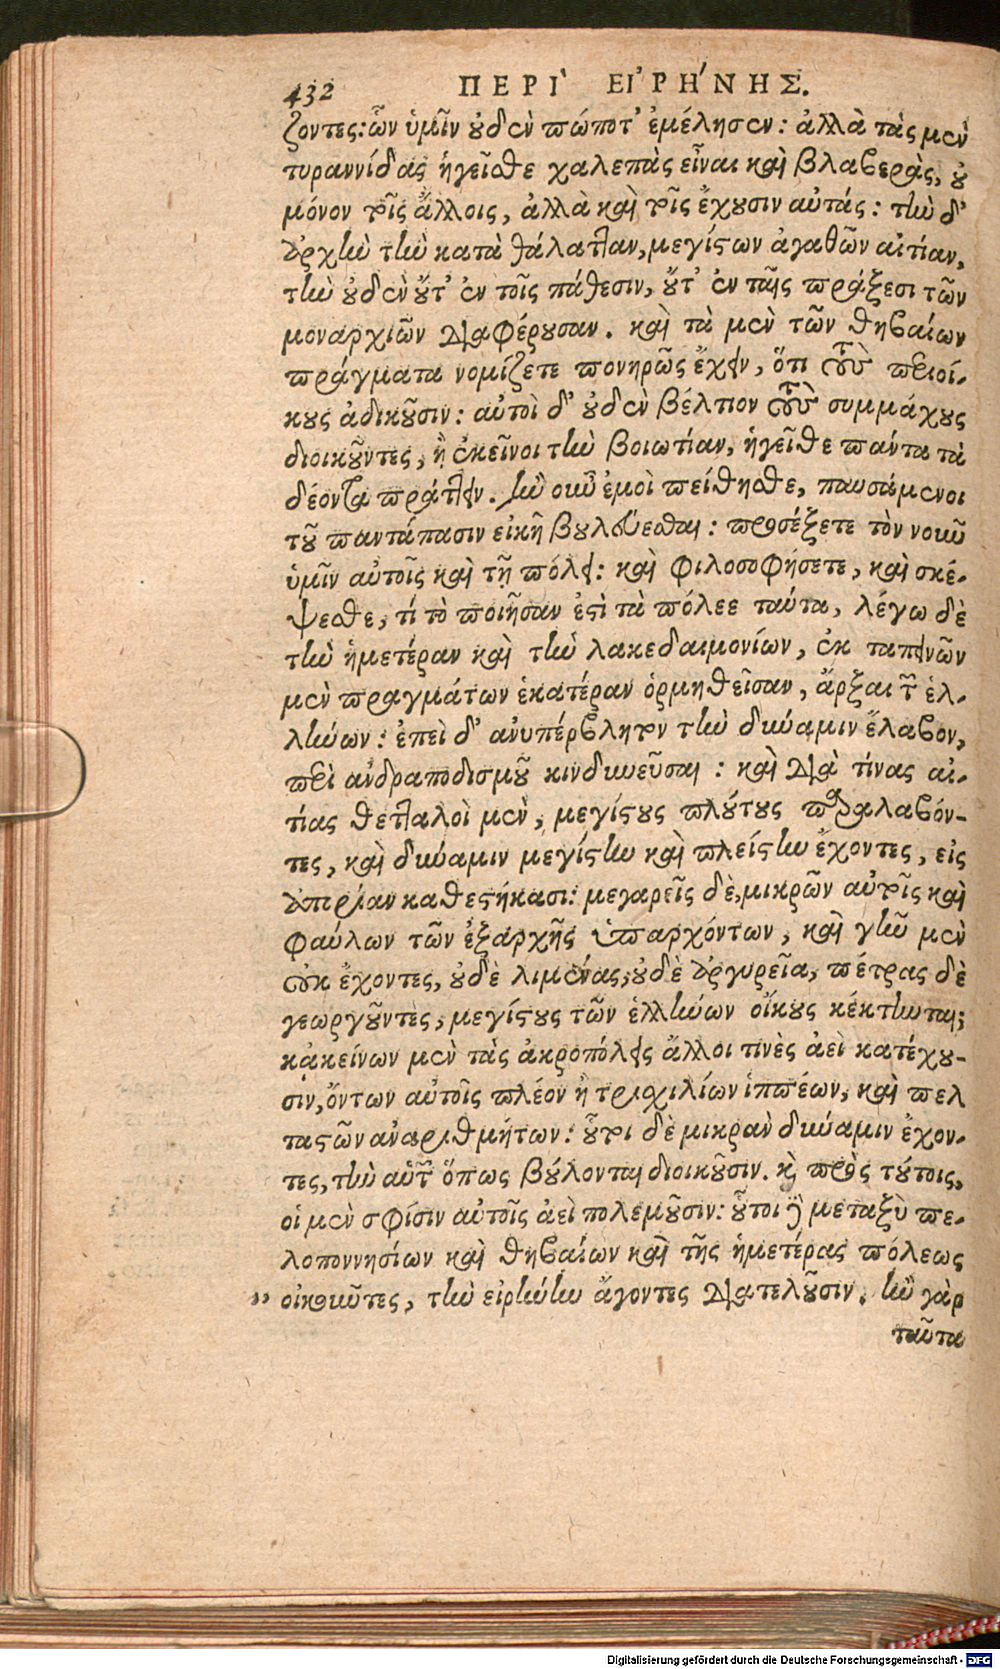 432 ΠΕΡΙ` ΕΙ᾽ΡΗ´ΝΗΣ.
ζοντες: ὧν ὑμῖν οὐδὲν πώποτ' ἐμέλησεν: ἀλλὰ τὰς μὲν
τυραννίδας ἡγεῖσθε χαλεπὰς εἶναι καὶ βλαβερὰς, οὐ
μόνον τοῖς ἄλλοις, ἀλλὰ καὶ τοῖς ἔχουσιν αὐτάς: τὴν δ'
ἀρχὴν τὴν κατὰ θάλατταν, μεγίστων ἀγαθῶν αἰτίαν,
τὴν οὐδὲν οὔτ' ἐν τοῖς πάθεσιν, οὔτ' ἐν ταῖς πράξεσι τῶν
μοναρχιῶν διαφέρουσαν. καὶ τὰ μὲν τῶν θηβαίων
πράγματα νομίζετε πονηρῶς ἔχειν, ὅτι τοὺς περιοί-
κους ἀδικοῦσιν: αὐτοὶ δ' οὐδὲν βέλτιον τοὺς συμμάχους
διοικοῦντες, ἢ ἐκεῖνοι τὴν βοιωτίαν, ἡγεῖσθε πάντα τὰ
δέοντα πράττειν. ἢν οὖν ἐμοὶ πείθησθε, παυσάμενοι
τοῦ παντάπασιν εἰκῆ βουλεύεσθαι: προσέξετε τὸν νοῦν
ὑμῖν αὐτοῖς καὶ τῇ πόλει: καὶ φιλοσοφήσετε, καὶ σκέ-
ψεσθε, τί τὸ ποιῆσαν ἐστὶ τὰ πόλεε ταύτα, λέγω δὲ
τὴν ἡμετέραν καὶ τὴν λακεδαιμονίων, ἐκ ταπεινῶν
μὲν πραγμάτων ἑκατέραν ὁρμηθεῖσαν, ἄρξαι τῶν ἑλ-
λήνων: ἐπεὶ δ' ἀνυπέρβλητον τὴν δύναμιν ἔλαβον,
περὶ ἀνδραποδισμοῦ κινδυνεῦσαι: καὶ διὰ τίνας αἰ-
τίας θετταλοὶ μὲν, μεγίστους πλούτους παραλαβόν-
τες, καὶ δύναμιν μεγίστην καὶ πλείστην ἔχοντες, εἰς
ἀπορίαν καθεστήκασι: μεγαρεῖς δὲ, μικρῶν αὐτοῖς καὶ
φαύλων τῶν ἐξαρχῆς ὑπαρχόντων, καὶ γῆν μὲν
οὐκ ἔχοντες, οὐδὲ λιμένας, οὐδὲ ἀργυρεῖα, πέτρας δὲ
γεωργοῦντες, μεγίστους τῶν ἑλλήνων οἴκους κέκτηνται;
κᾀκείνων μὲν τὰς ἀκροπόλεις ἄλλοι τινὲς ἀεὶ κατέχου-
σιν, ὄντων αὐτοῖς πλέον ἢ τρισχιλίων ἱππέων, καὶ πελ
ταστῶν ἀναριθμήτων: οὗτοι δὲ μικρὰν δύναμιν ἔχον-
τες, τὴν αὑτῶν ὅπως βούλονται διοικοῦσιν. καὶ πρὸς τούτοις,
οἱ μὲν σφίσιν αὐτοῖς ἀεὶ πολεμοῦσιν: οὗτοι δὲ μεταξὺ πε-
λοποννησίων καὶ θηβαίων καὶ τῆς ἡμετέρας πόλεως
„ οἰκοῦντες, τὴν εἰρήνην ἄγοντες διατελοῦσιν. ἢν γὰρ
ταῦτα
Digitalisierung gefördert durch die Deutsche Forschungsgemeinschaft - DFG